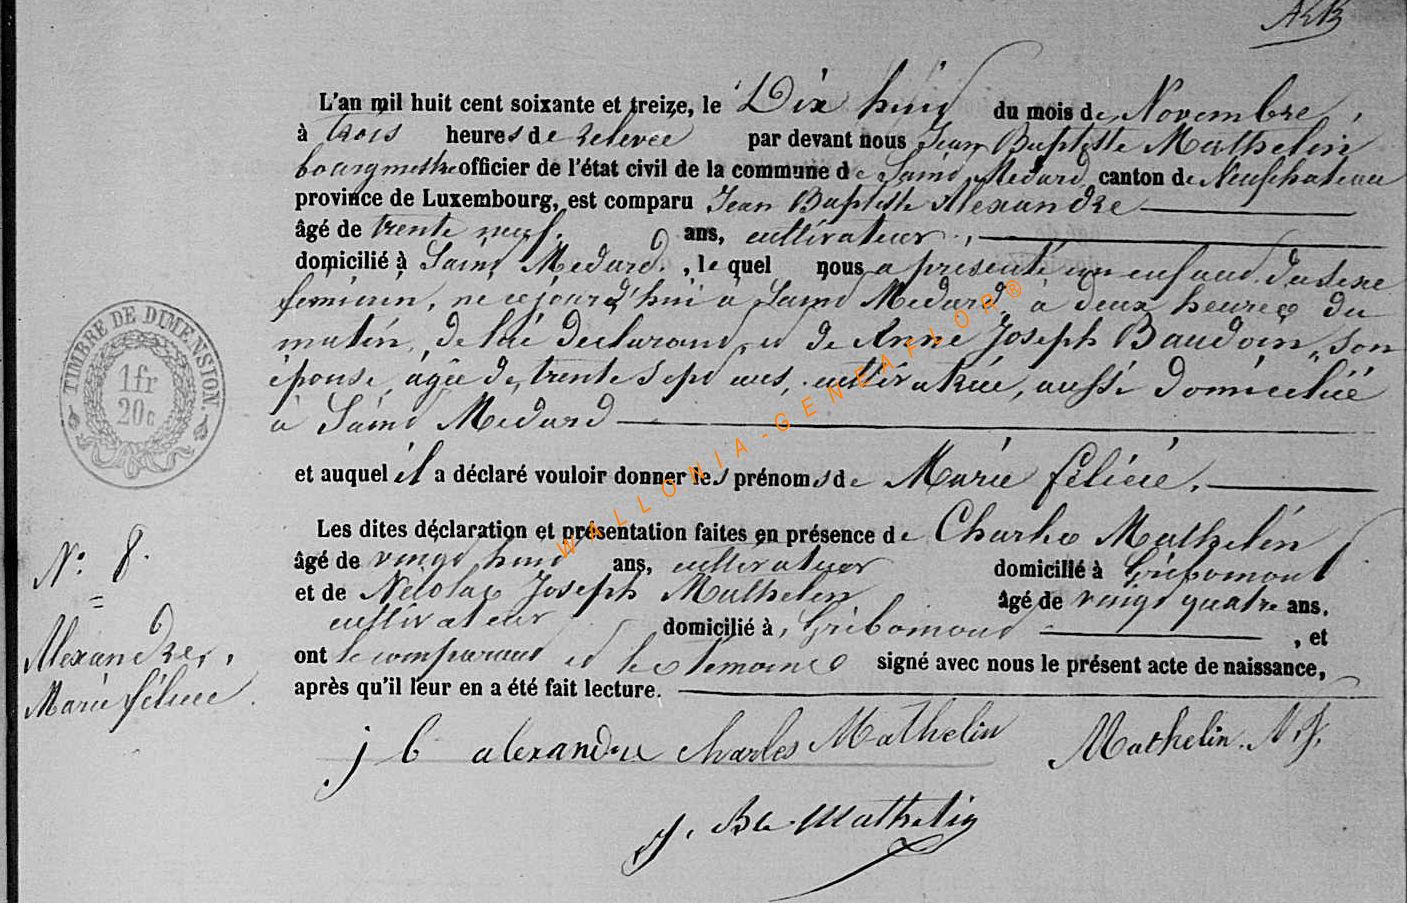 L'an mil huit cent soixante et treize, le Dix huit du mois de Novembre,
à trois heures de relevée par devant nous Jean Baptiste Mathelin
bourgmestre officier de l'état civil de la commune de Saint Médard, canton de Neufchateau
province de Luxembourg, est comparu Jean Baptiste Alexandre
âgé de trente neuf ans, cultivateur,
domicilié à Saint Médard, le quel nous a présenté un enfant du sexe
féminin, né cejourd'hui à Saint Médard, à deux heures du
matin, de lui déclarant, et de Anne Joseph Baudoin, son
épouse, agée de trente sept ans, cultivatrice, aussi domiciliée
à Saint Médard
et auquel il a déclaré vouloir donner les prénoms de Marie félicie,
Les dites déclaration et présentation faites en présence de Charles Mathelin
âgé de vingt huit ans, cultivateur domicilié à Gribomont
et de Nicolas Joseph Mathelin âgé de vingt quatre ans,
cultivateur domicilié à, Gribomont, et
ont le comparant et les témoins signé avec nous le présent acte de naissance,
après qu'il leur en a été fait lecture.
j b alexandre charles Mathelin Mathelin. N. J.
J. Bte Mathelin
TIMBRE DE DIMENSION.
1fr
20c
N° 8.
Alexandre,
Marie félicie
WALLONIA-GENEAFLOR®